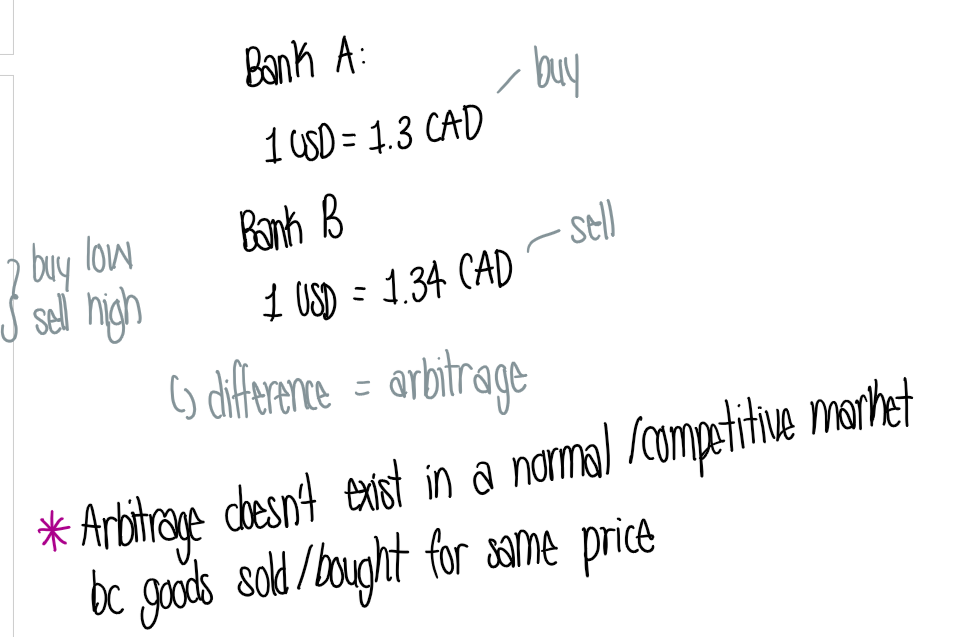 Bank A:
buy
1 USD = 1.3 CAD
Bank B
sell
1 USD = 1.34 CAD
buy low
sell high
difference = arbitrage
* Arbitrage doesn't exist in a normal /competitive market
bc goods sold/bought for same price